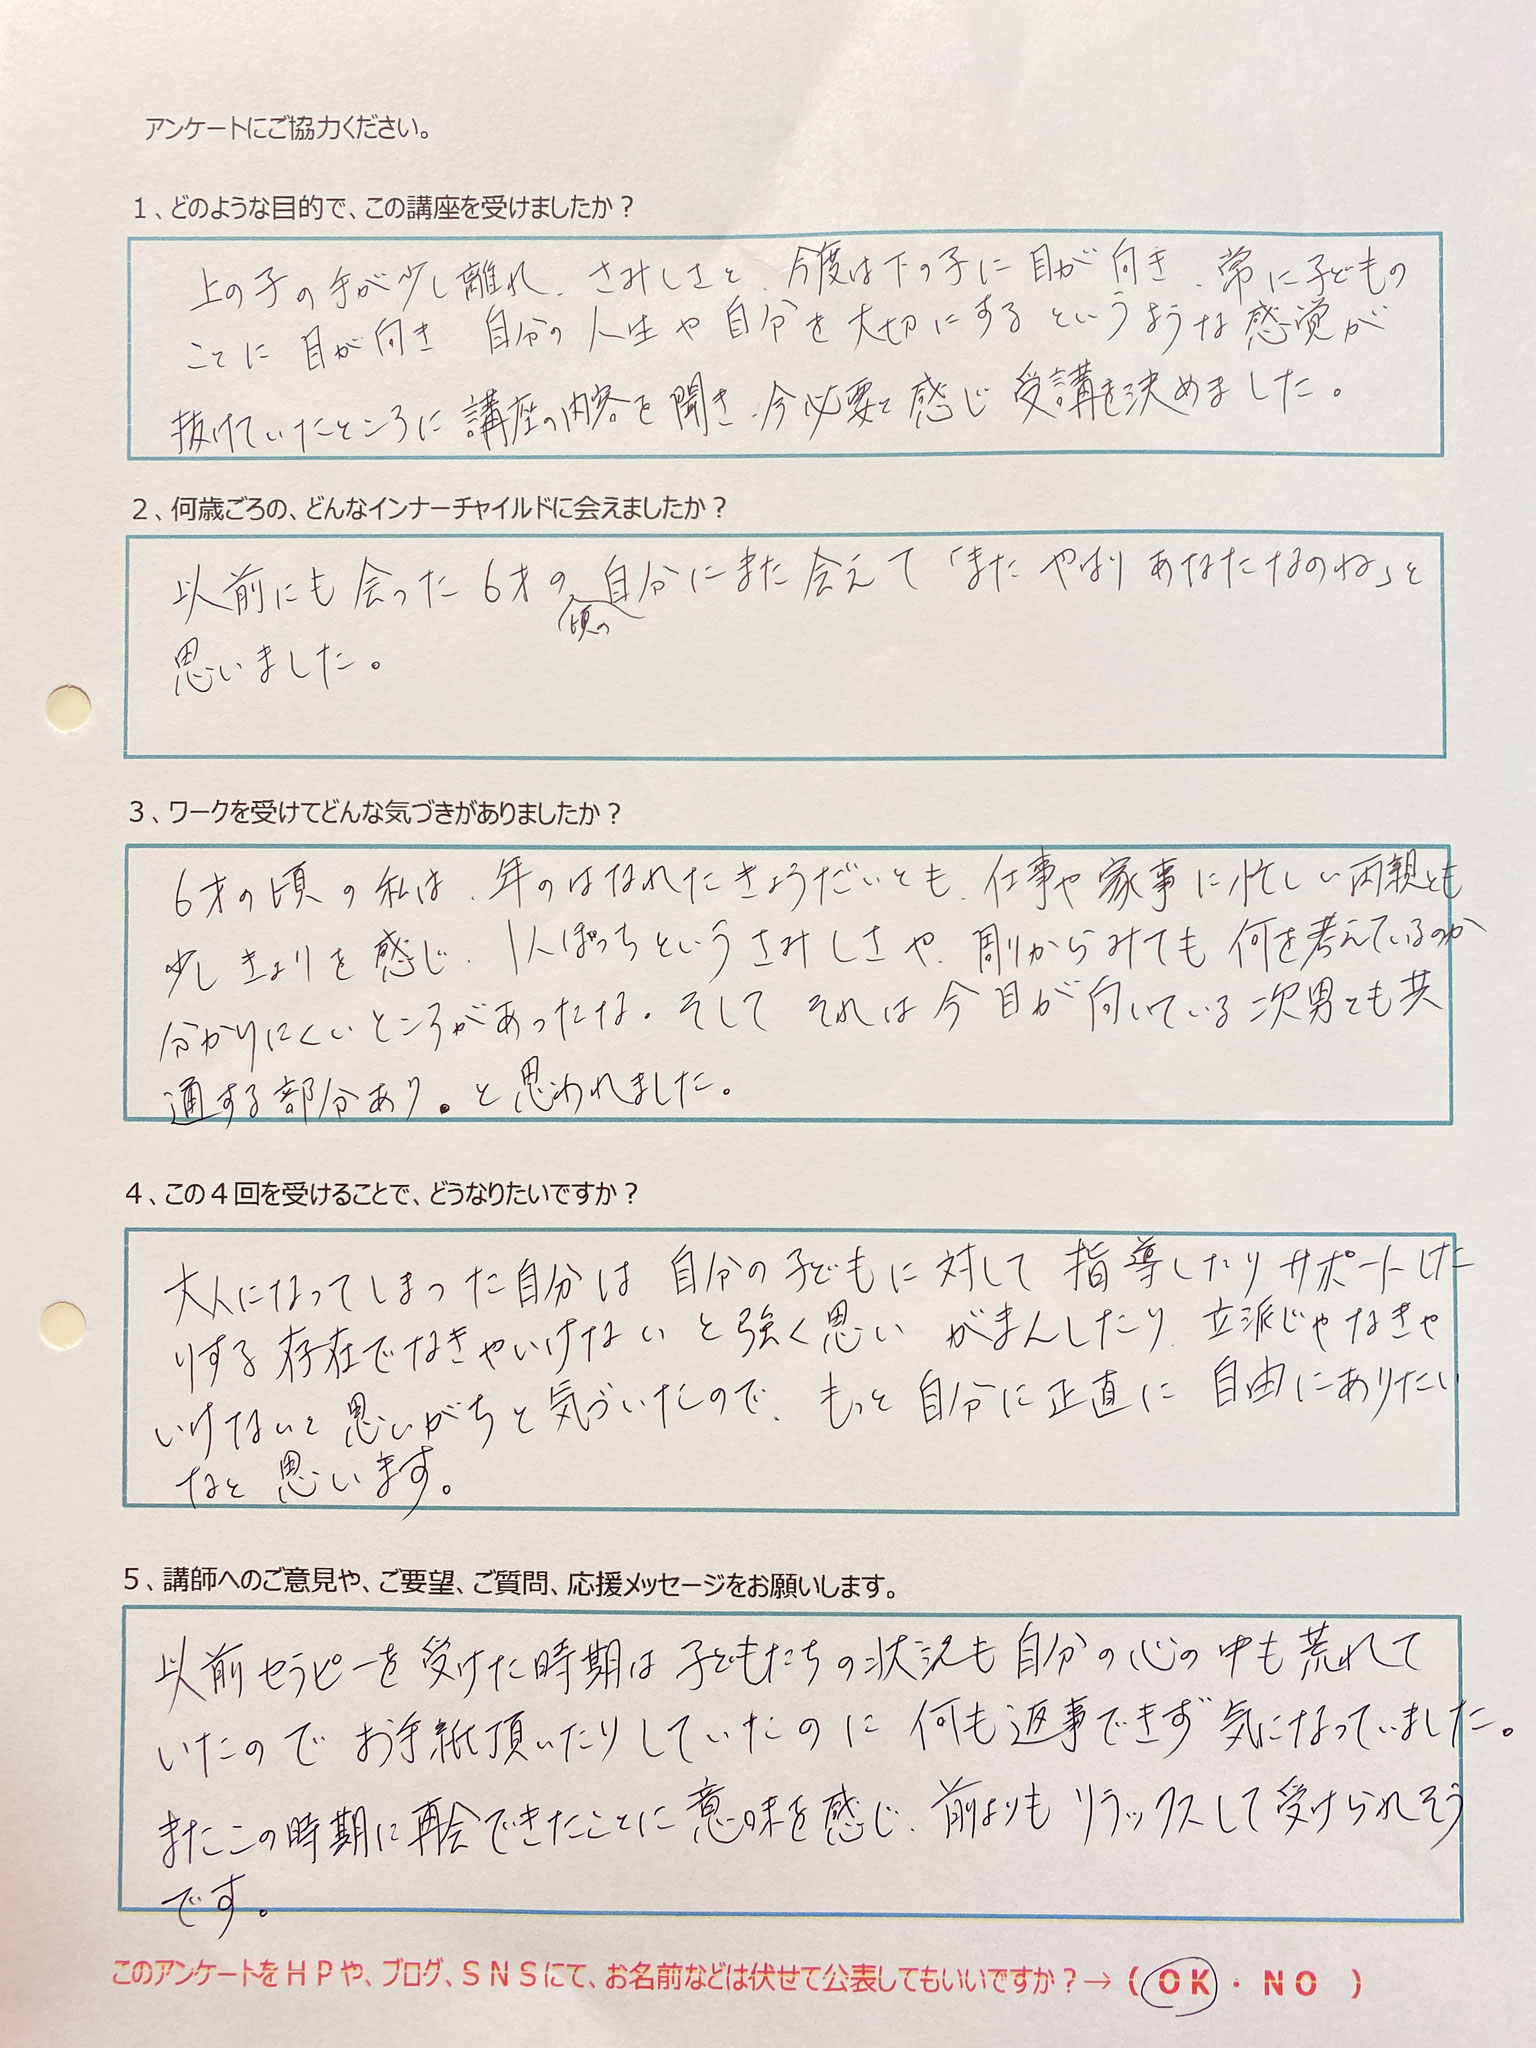 アンケートにご協力ください。
１、どのような目的で、この講座を受けましたか？
上の子の手が少し離れ、さみしさと、今度は下の子に目が向き、常に子どもの
ことに目が向き 自分の人生や自分を大切にするというような感覚が
抜けていたところに講座の内容を聞き、今必要と感じ受講を決めました。
２、何歳ごろの、どんなインナーチャイルドに会えましたか？
以前にも会った6才の自分にまた会えて「また やはり あなたなのね」と
頃の
思いました。
３、ワークを受けてどんな気づきがありましたか？
6才の頃の私は、年のはなれたきょうだいとも、仕事や家事に忙しい両親とも
少しきょりを感じ、1人ぼっちというさみしさや、周りからみても何を考えているのか
分かりにくいところがあったな。そして それは今目が向いている次男とも共
通する部分あり。と思われました。
４、この４回を受けることで、どうなりたいですか？
大人になってしまった自分は 自分の子どもに対して 指導したりサポートした
りする存在でなきゃいけないと強く思い がまんしたり、立派じゃなきゃ
いけないと思いがちと気づいたので、もっと自分に正直に 自由にありたい
なと思います。
５、講師へのご意見や、ご要望、ご質問、応援メッセージをお願いします。
以前セラピーを受けた時期は子どもたちの状況も自分の心の中も荒れて
いたので お手紙頂いたりしていたのに 何も返事できず気になっていました。
またこの時期に再会できたことに意味を感じ、前よりもリラックスして受けられそう
です。
このアンケートをＨＰや、ブログ、ＳＮＳにて、お名前などは伏せて公表してもいいですか？→（ ＯＫ・ＮＯ ）